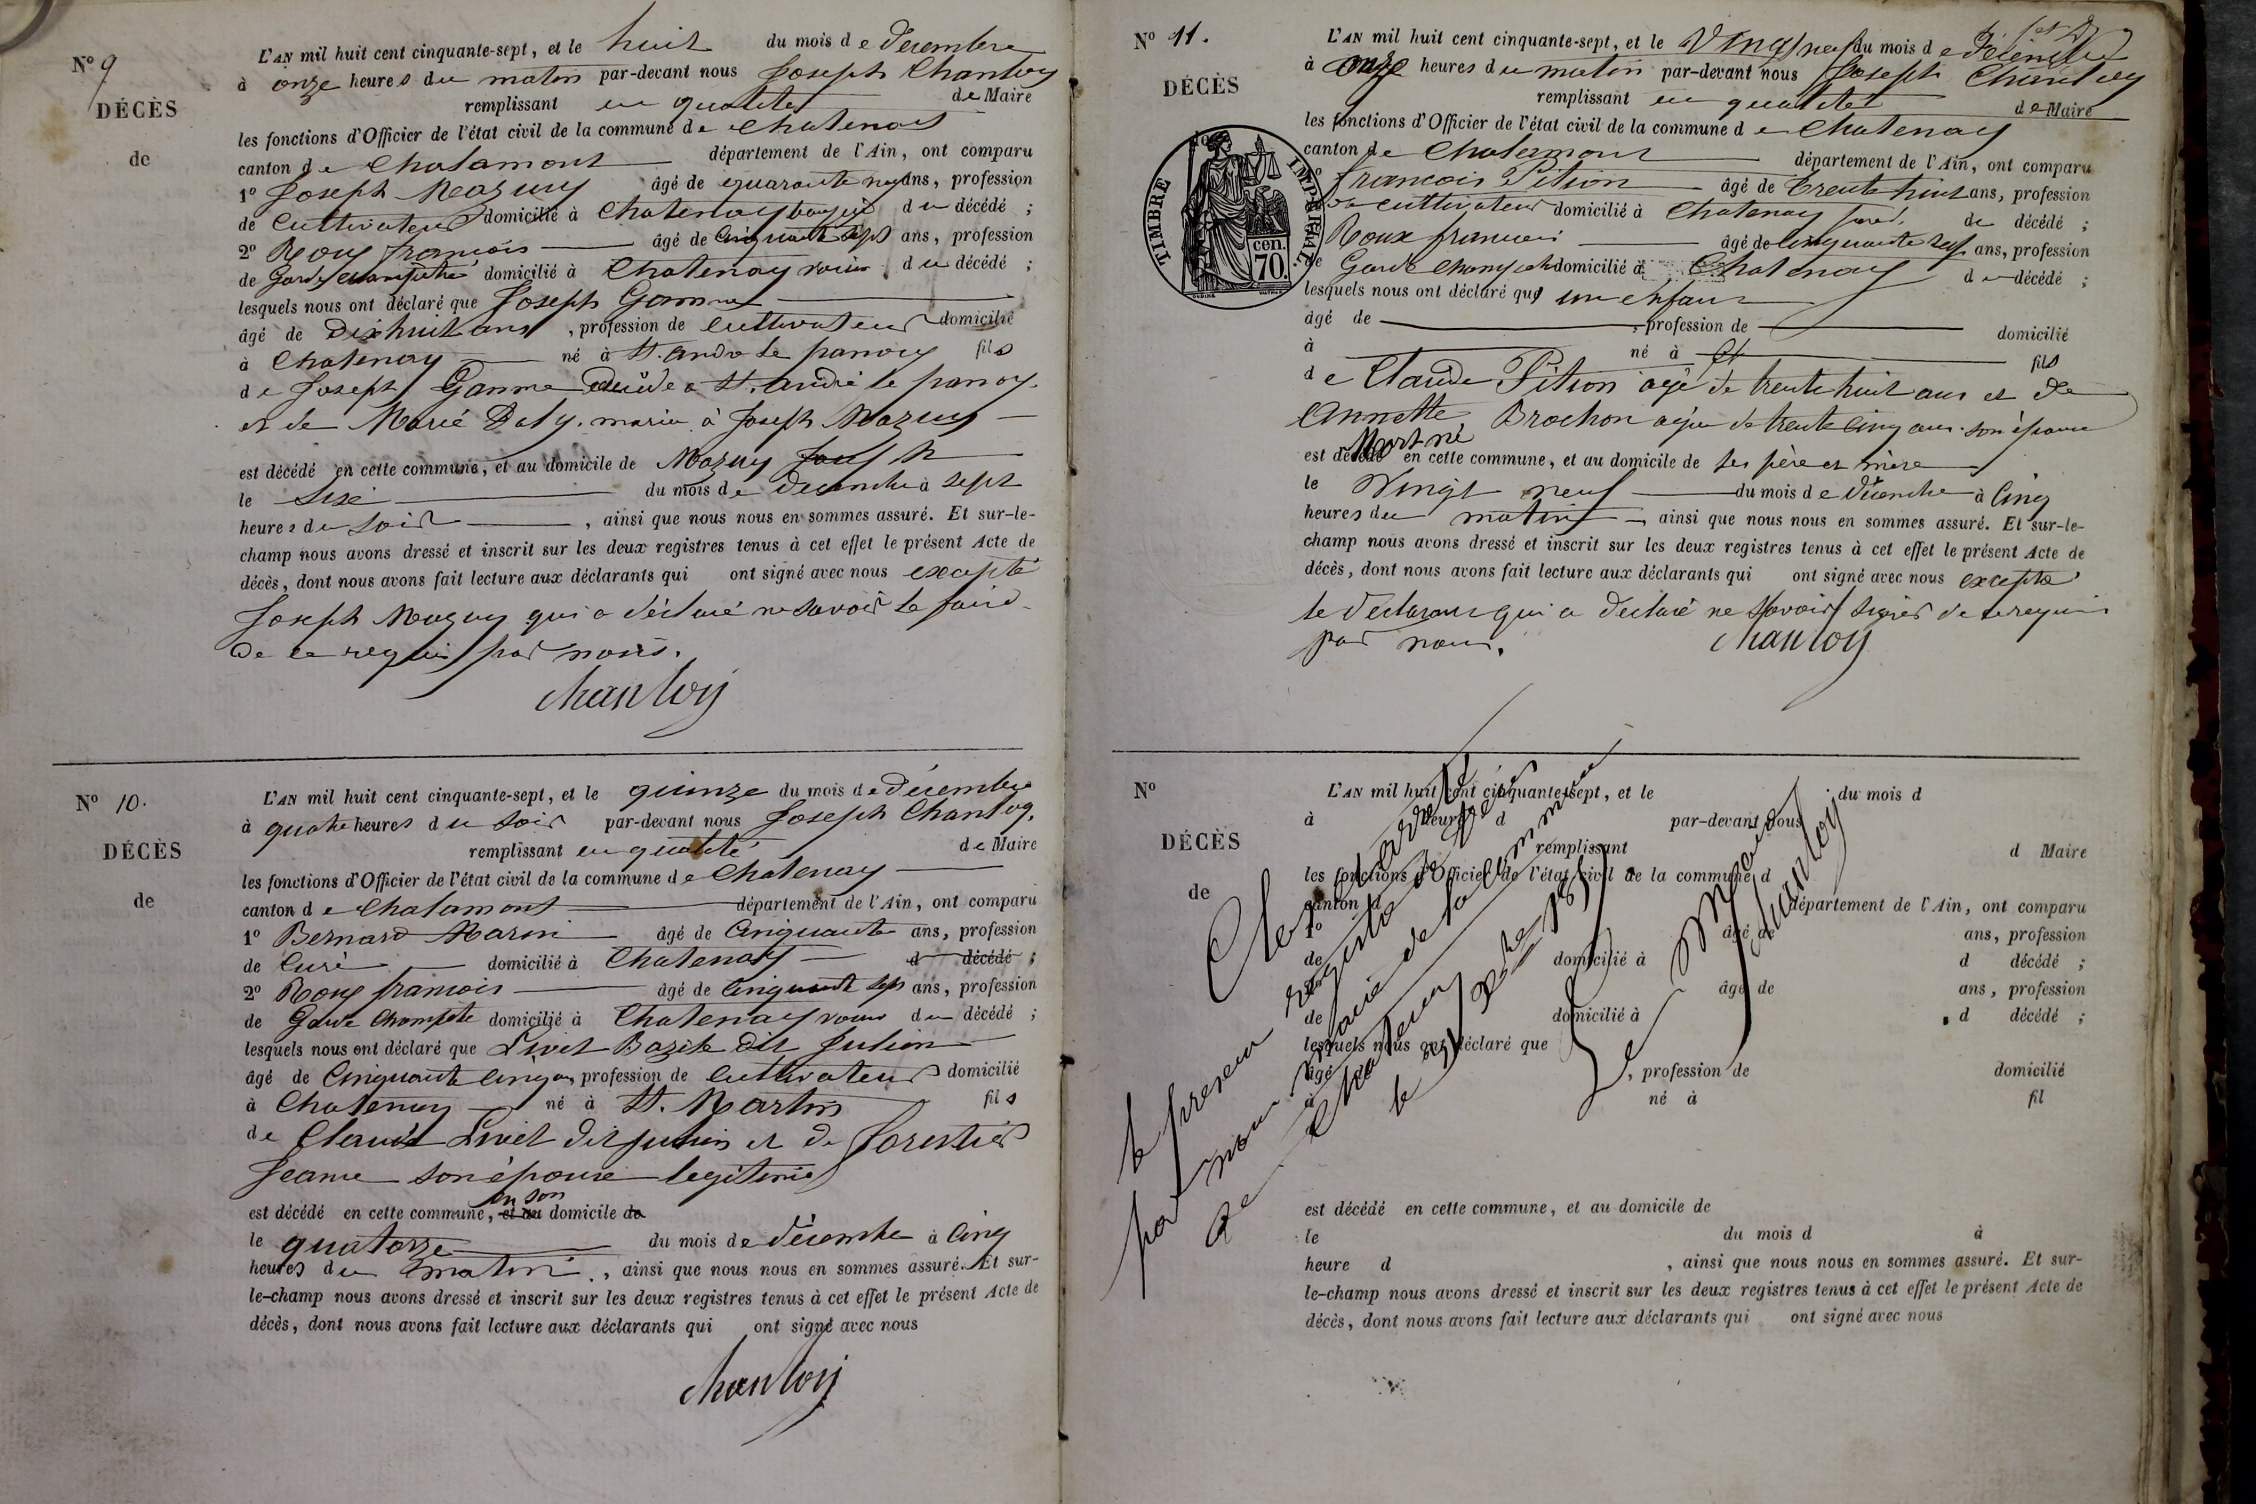 N° 9
DÉCÈS
de
L'AN mil huit cent cinquante-sept, et le huit du mois de décembre
à onze heures du matin par-devant nous Joseph Chanloy
remplissant en qualité de Maire
les fonctions d'Officier de l'état civil de la commune de Chatenay
canton de Chalamont département de l'Ain, ont comparu
1° Joseph Mazuy âgé de quarante ans, profession
de Cultivateur domicilié à Chatenay du décédé ;
2° Roux françois âgé de Cinquante sept ans, profession
de Garde champêtre domicilié à Chatenay voisin du décédé ;
lesquels nous ont déclaré que Joseph Gamme
âgé de Dix huit ans, profession de Cultivateur domicilié
à Chatenay né à St. andré le panoux fils
de Joseph Gamme décédé a St. andré le panoux
et de Marie Daly, mariée à Joseph Mazuy
est décédé en cette commune, et au domicile de Mazuy Joseph
le Six du mois de décembre à sept
heures du soir, ainsi que nous nous en sommes assuré. Et sur-le-
champ nous avons dressé et inscrit sur les deux registres tenus à cet effet le présent Acte de
décès, dont nous avons fait lecture aux déclarants qui ont signé avec nous excepté
Joseph Mazuy qui a déclaré ne savoir le faire
de ce requis par nous.
Chanloy
N° 10.
DÉCÈS
de
L'AN mil huit cent cinquante-sept, et le quinze du mois de décembre
à quatre heures du soir par-devant nous Joseph Chanloy.
remplissant en qualité de Maire
les fonctions d'Officier de l'état civil de la commune de Chatenay
canton de Chalamont département de l'Ain, ont comparu
1° Bernard Marin âgé de Cinquante ans, profession
de Curé domicilié à Chatenay d décédé ;
2° Roux francois âgé de Cinquante sept ans, profession
de Garde Champetre domicilié à Chatenay voisin du décédé ;
lesquels nous ont déclaré que Livet Bazile dit Julien
âgé de Cinquante cinq ans profession de Cultivateur domicilié
à Chatenay né à St. Martin fils
de Claude Livet dit Julien et de Forestier
Jeanne son épouse legitime
est décédé en cette commune, et au en son domicile de
le quatorze du mois de décembre à Cinq
heures du matin, ainsi que nous nous en sommes assuré. Et sur-
le-champ nous avons dressé et inscrit sur les deux registres tenus à cet effet le présent Acte de
décès, dont nous avons fait lecture aux déclarants qui ont signé avec nous
Chanloy
N° 11.
DÉCÈS
TIMBRE IMPERIAL.
70 cen.
L'AN mil huit cent cinquante-sept, et le Vingt neuf du mois de décembre
à onze heures du matin par-devant nous Joseph Chanloy
remplissant en qualité de Maire
les fonctions d'Officier de l'état civil de la commune de Chatenay
canton de Chalamont département de l'Ain, ont comparu
françois Pition âgé de trente huit ans, profession
de cultivateur domicilié à Chatenay du décédé ;
Roux francois âgé de Cinquante sept ans, profession
de Garde Champetre domicilié à Chatenay du décédé ;
lesquels nous ont déclaré que un enfant
âgé de , profession de domicilié
à né à fils
de Claude Pition agé de trente huit ans et de
Annette Brochon agée de trente Cinq ans son épouse
Mort né
est décédé en cette commune, et au domicile de ses père et mère
le Vingt neuf du mois de décembre à Cinq
heures du matin, ainsi que nous nous en sommes assuré. Et sur-le-
champ nous avons dressé et inscrit sur les deux registres tenus à cet effet le présent Acte de
décès, dont nous avons fait lecture aux déclarants qui ont signé avec nous excepté
le déclarant qui a déclaré ne savoir signer de ce requis
par nous.
Chanloy
N°
DÉCÈS
de
L'AN mil huit cent cinquante-sept, et le du mois d
à heure d par-devant nous
remplissant d Maire
les fonctions d'Officier de l'état civil de la commune d
canton d département de l'Ain, ont comparu
1° âgé de ans, profession
de domicilié à d décédé ;
2° âgé de ans, profession
de domicilié à d décédé ;
lesquels nous ont déclaré que
âgé de , profession de domicilié
à né à fil
est décédé en cette commune, et au domicile de
le du mois d à
heure d , ainsi que nous nous en sommes assuré. Et sur-
le-champ nous avons dressé et inscrit sur les deux registres tenus à cet effet le présent Acte de
décès, dont nous avons fait lecture aux déclarants qui ont signé avec nous
Clos et arrêté
le present registre de décès
par nous maire de la commune
de Chatenay
le 31 Xbre 1857.
Le Maire
Chanloy